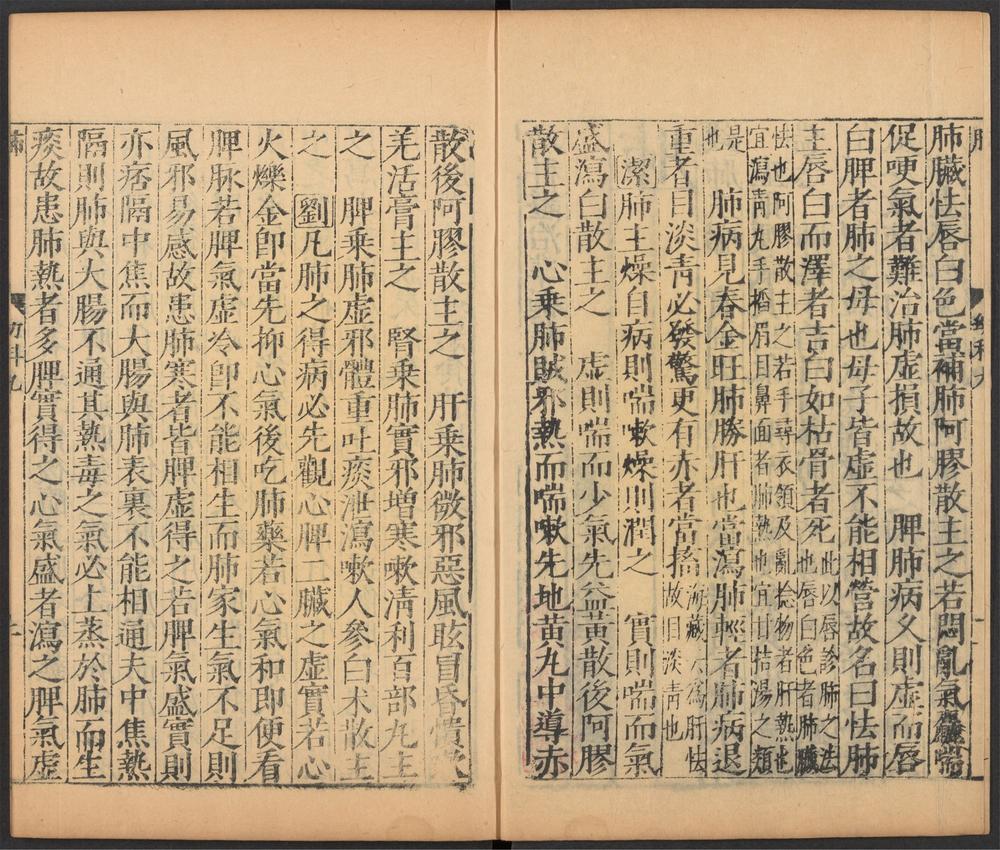 肺臟怯唇白色當補肺阿膠散主之若悶亂氣麤喘
促哽氣者難治肺虛損故也　脾肺病久則虛而唇
白脾者肺之母也母子皆虛不能相營故名曰怯肺
主唇白而澤者吉白如枯骨者死此以唇診肺之法
也唇白色者肺臟
怯也阿膠散主之若手尋衣領及亂捻物者肝熱也
宜瀉靑丸手搯眉目鼻面者肺熱也宜甘桔湯之類
是
也　肺病見春金旺肺勝肝也當瀉肺輕者肺病退
重者目淡靑必發驚更有赤者當搐海藏云爲肝怯
故目淡靑也
潔肺主燥自病則喘嗽燥則潤之　實則喘而氣
盛瀉白散主之　虛則喘而少氣先益黃散後阿膠
散主之　心乘肺賊邪熱而喘嗽先地黃丸中導赤
散後阿膠散主之　肝乘肺微邪惡風眩冒昏憒嗽
羌活膏主之　腎乘肺實邪增寒嗽淸利百部丸主
之　脾乘肺虛邪體重吐痰泄瀉嗽人參白朮散主
之　劉凡肺之得病必先觀心脾二臟之虛實若心
火爍金卽當先抑心氣後吃肺藥若心氣和卽便看
脾脉若脾氣虛冷卽不能相生而肺家生氣不足則
風邪易感故患肺寒者皆脾虛得之若脾氣盛實則
亦痞隔中焦而大腸與肺表裏不能相通夫中焦熱
隔則肺與大腸不通其熱毒之氣必上蒸於肺而生
痰故患肺熱者多脾實得之心氣盛者瀉之脾氣虛
肺　幼科九